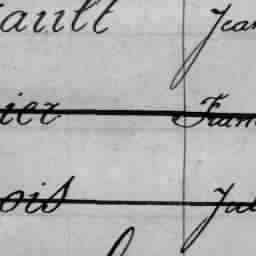 ault Jean
ier Fran
ois Jul